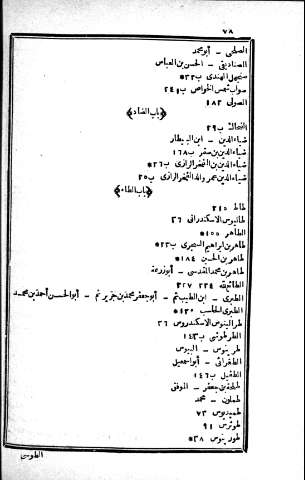 ٧٨
الصلحى – أبو محمد
الصناديقى – الحسن بن العباس
صنجهل الهندى ب ٣٢*
صواب شمس الخواص ب ٢٤١
الصولى ١٨٢
﴿باب الضاد﴾
الضحاك ب ٢٩
ضياء الدين – ابن البيطار
ضياء الدين بن صقر ب ١٦٨
ضياء الدين بن الفخر الرازى ب ٢٦*
ضياء الدين عمر والد الفخر الرازى ب ٢٥
﴿باب الطاء﴾
طالط ٢١٥
طاليوس الاسكندرانى ٣٦
الطاهر ١٥٥*
طاهر بن ابراهيم السجرى ب ٢٣*
طاهر بن الحسين ١٨٤*
طاهر بن محمد المقدسى – أبو زرعة
الطائيقه ٢٢٤ ٢٢٧
الطبرى – ابن الطيب ثم – أبو جعفر محمد بن جرير ثم – أبو الحسن أحمد بن محمد
الطبرى الحاسب ١٣٠*
طرالينوس الاسكندروس ٣٦
الطرطوشى ب ١٤٣
طرينوس –
الطغرائى – أبو اسمعيل
الطفيل ب ١٤٦
طلحة بن جعفر – الموفق
طملون – محمد
طميديوس ٧٣
طوثرش ٩١
طورينوس ٣٨*
الطوسى